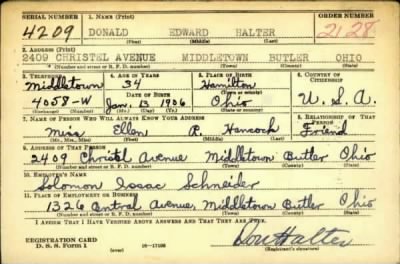 SERIAL NUMBER 1. NAME (Print) ORDER NUMBER
4209 DONALD EDWARD HALTER 2128
(First) (Middle) (Last)
2. ADDRESS (Print)
2409 CHRISTEL AVENUE MIDDLETOWN BUTLER OHIO
(Number and street or R. F. D. number) (Town) (County) (State)
3. TELEPHONE 4. AGE IN YEARS 5. PLACE OF BIRTH 6. COUNTRY OF CITIZENSHIP
Middletown 34 Hamilton
DATE OF BIRTH (Town or county)
4058-W Jan. 13 1906 Ohio U.S.A.
(Exchange) (Number) (Mo.) (Day) (Yr.) (State or country)
7. NAME OF PERSON WHO WILL ALWAYS KNOW YOUR ADDRESS 8. RELATIONSHIP OF THAT PERSON
Miss Ellen R. Hancock Friend
(Mr., Mrs., Miss) (First) (Middle) (Last)
9. ADDRESS OF THAT PERSON
2409 Christel Avenue Middletown Butler Ohio
(Number and street or R. F. D. number) (Town) (County) (State)
10. EMPLOYER'S NAME
Solomon Isaac Schneider
11. PLACE OF EMPLOYMENT OR BUSINESS
1326 Central Avenue, Middletown Butler Ohio
(Number and street or R. F. D. number) (Town) (County) (State)
I AFFIRM THAT I HAVE VERIFIED ABOVE ANSWERS AND THAT THEY ARE TRUE.
REGISTRATION CARD
D. S. S. Form 1 (over) 16-17105 Don Halter
(Registrant's signature)